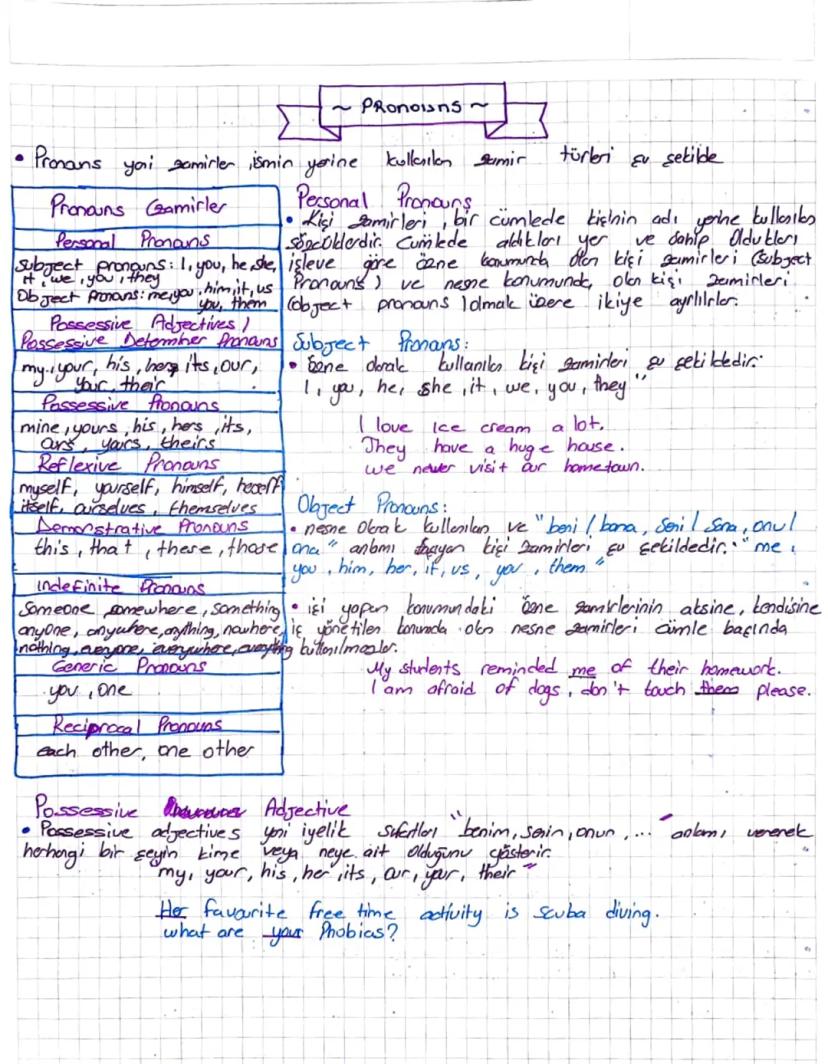 ~ PRONOUNS ~
• Pronouns yani zamirler, ismin yerine kullanılan zamir türleri şu şekilde
Pronouns (zamirler
Personal Pronouns
Subject pronouns: I, you, he, she,
it, we, you, they
Object pronouns: me, you, him, it, us
you, them
Possessive Adjectives /
Possessive Determiner Pronouns
my, your, his, hers its, our,
your, their
Possessive Pronouns
mine, yours, his, hers, its,
ours, yours, theirs
Reflexive Pronouns
myself, yourself, himself, herself
itself, ourselves, themselves
Demonstrative Pronouns
this, that, these, those
Indefinite Pronouns
Someone somewhere, something
anyone, anywhere, anything, nowhere,
nothing, everyone, everywhere, everything
Generic Pronouns
you, one
Reciprocal Pronouns
each other, one other
Personal Pronouns
• Kişi zamirleri, bir cümlede kişinin adı yerine kullanılan
sözcüklerdir. Cümlede aldıkları yer ve sahip oldukları
işleve göre özne konumunda olan kişi zamirleri (subject
Pronouns) ve nesne konumunda olan kişi zamirleri
(object pronouns) olmak üzere ikiye ayrılırlar.
Subject Pronouns:
• özne olarak kullanılan kişi zamirleri şu şekildedir:
I, you, he, she, it, we, you, they "
I love ice cream a lot.
They have a huge house.
we never visit our hometown.
Object Pronouns:
• nesne olarak kullanılan ve "beni / bana, seni / sana, onu /
ona" anlamı taşıyan kişi zamirleri şu şekildedir: "me,
you, him, her, it, us, you, them "
• işi yapan konumundaki özne zamirlerinin aksine, kendisine
iş yöneltilen konumda olan nesne zamirleri cümle başında
kullanılmazlar.
My students reminded me of their homework.
I am afraid of dogs, don't touch them please.
Possessive Adjective
• Possessive adjectives yani iyelik sıfatları "benim, senin, onun, ... " anlamı vererek
herhangi bir şeyin kime veya neye ait olduğunu gösterir.
my, your, his, her, its, our, your, their "
Her favourite free time activity is scuba diving.
what are your Phobias?